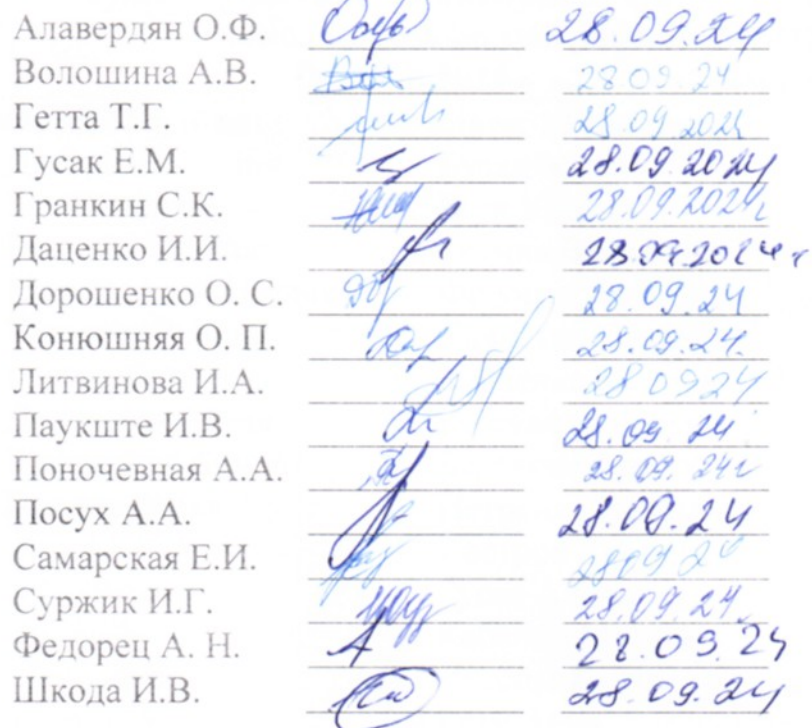 Алавердян О.Ф. 28.09.24
Волошина А.В. 28 09 24
Гетта Т.Г. 28.09 2024
Гусак Е.М. 28.09.2024
Гранкин С.К. 28.09.2024
Даценко И.И. 28.09.2024 г
Дорошенко О. С. 28.09.24
Конюшняя О. П. 28.09.24.
Литвинова И.А. 28 09 24
Паукште И.В. 28.09 24
Поночевная А.А. 28.09.24г
Посух А.А. 28.09.24
Самарская Е.И. 28 09 24
Суржик И.Г. 28.09.24
Федорец А. Н. 28.09.24
Шкода И.В. 28.09.24